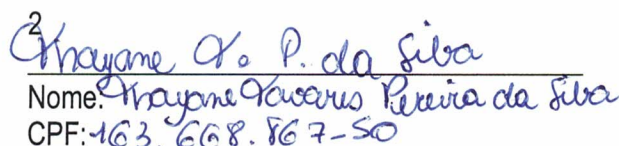 2
Thayane T. P. da Silva
Nome: Thayane Tavares Pereira da Silva
CPF: 163.668.867-50